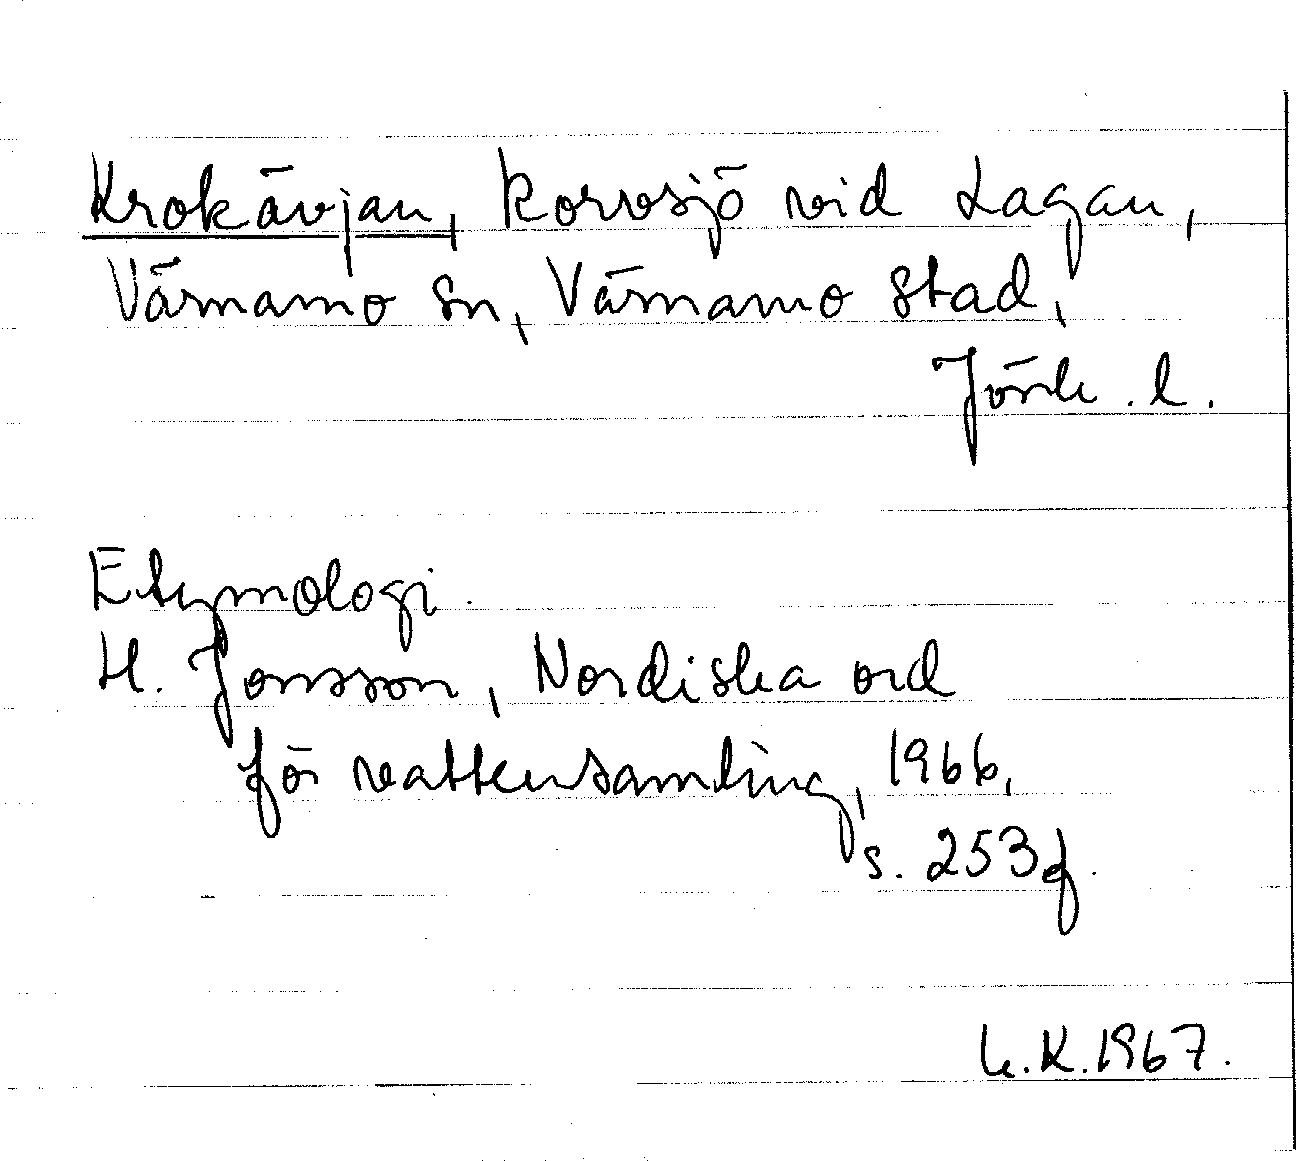 Krokävjan, korvsjö vid Lagan,
Värnamo sn, Värnamo stad,
Jönk. l.
Etymologi.
H. Jonsson, Nordiska ord
för vattensamling, 1966,
s. 253f.
L.K. 1967.